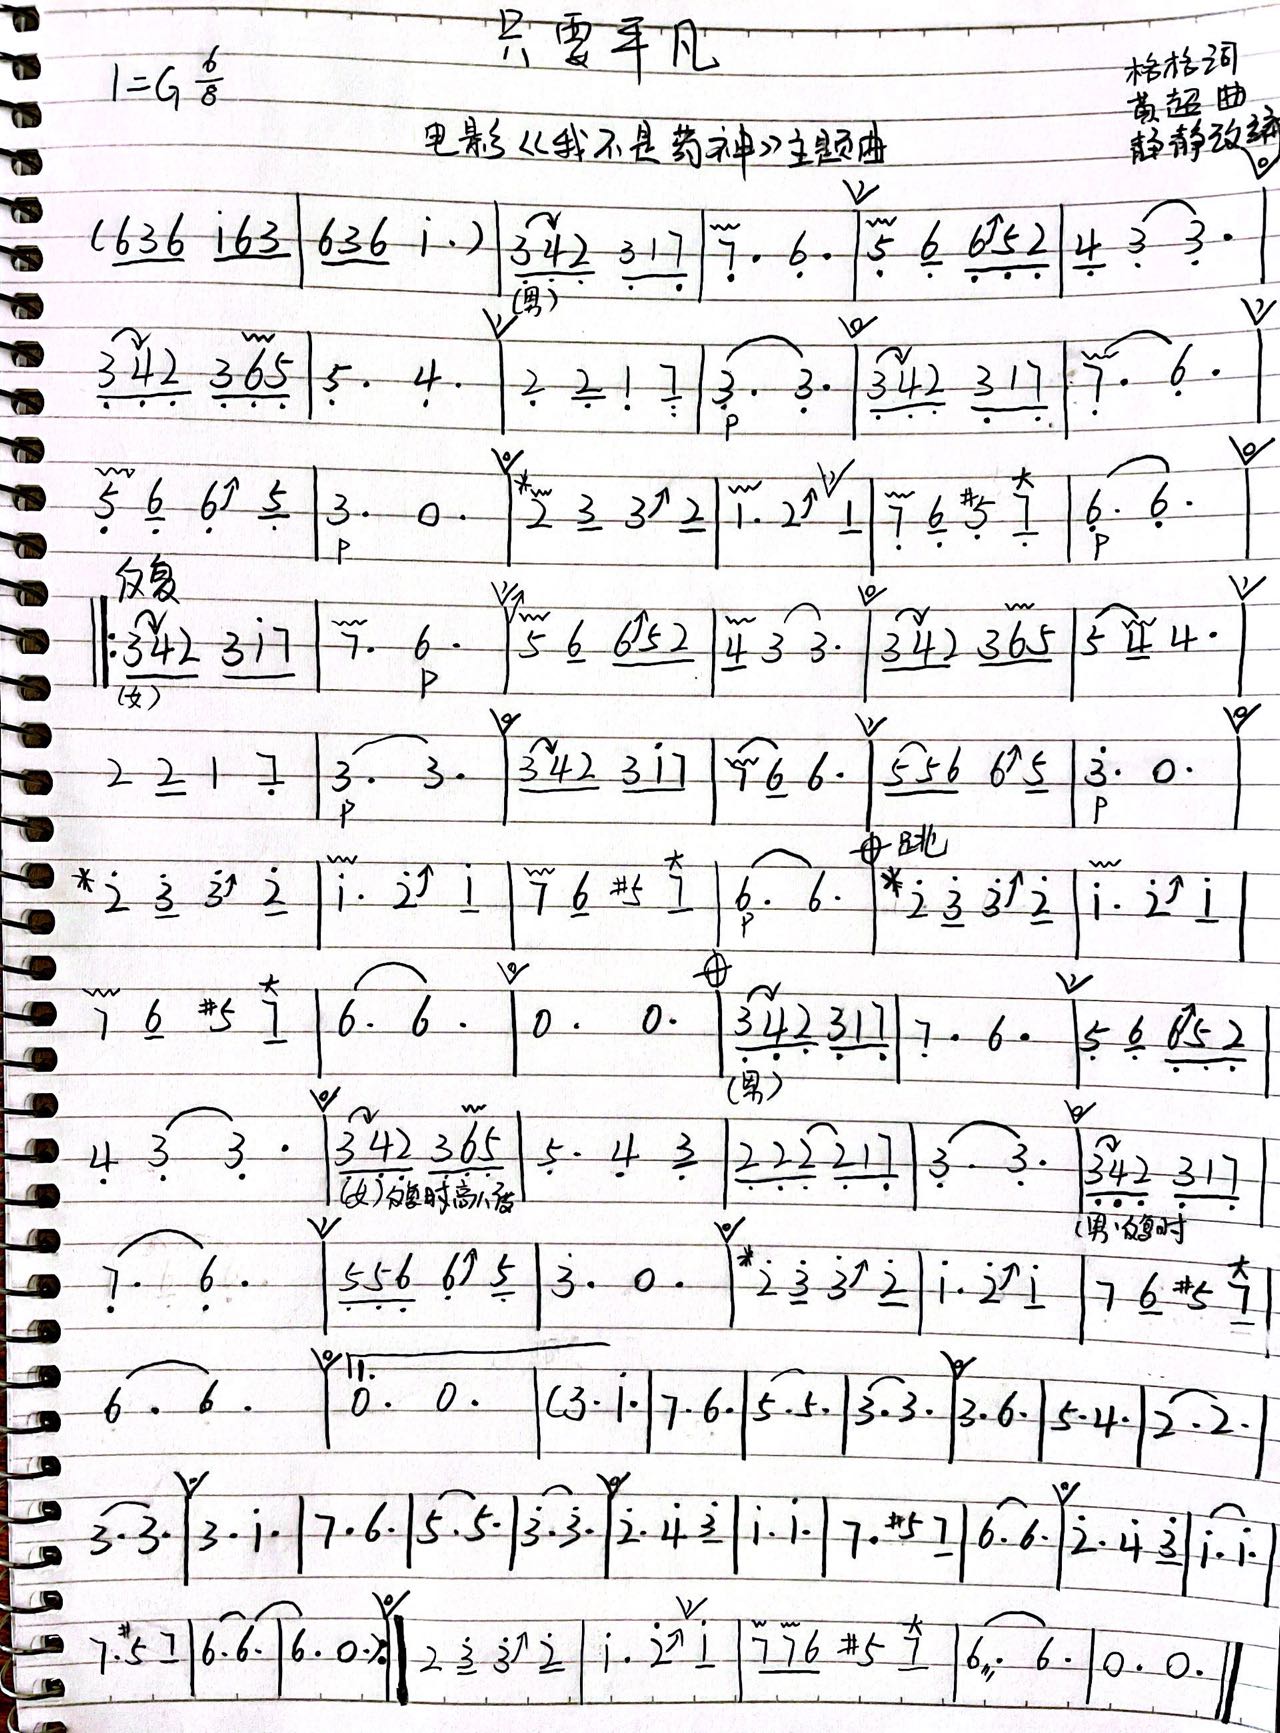 只要平凡
1=G 6/8
格格词
黄超曲
静静改编
电影《我不是药神》主题曲
(636 i63|636 i·)|342 317|7· 6·|5 6 652|4 3 3·|
(男)
342 365|5· 4·|2 2 1 7|3· 3·|342 317|7· 6·|
P
5 6 6 5|3· 0·|2 3 3 2|1· 2 1|7 6 #5 7|6· 6·|
P P
反复
‖:342 3i7|7· 6·|5 6 652|4 3 3·|342 365|5 4 4·|
(女) P
2 2 1 7|3· 3·|342 3i7|7 6 6·|556 6 5|3· 0·|
P P
跳
*2 3 3 2|i· 2 i|7 6 #5 7|6· 6·|*2 3 3 2|i· 2 i|
P
7 6 #5 7|6· 6·|0· 0·|342 317|7· 6·|5 6 652|
(男)
4 3 3·|342 365|5· 4 3|222 217|3· 3·|342 317|
(女)反复时高八度 (男)反复时
7· 6·|556 6 5|3· 0·|*2 3 3 2|i· 2 i|7 6 #5 7|
6· 6·|0· 0·|(3· i·|7· 6·|5· 5·|3· 3·|3· 6·|5· 4·|2· 2·|
3· 3·|3· i·|7· 6·|5· 5·|3· 3·|2· 4 3|i· i·|7· #5 7|6· 6·|2· 4 3|i· i·|
7· #5 7|6· 6·|6· 0·):‖2 3 3 2|i· 2 i|776 #5 7|6· 6·|0· 0·‖